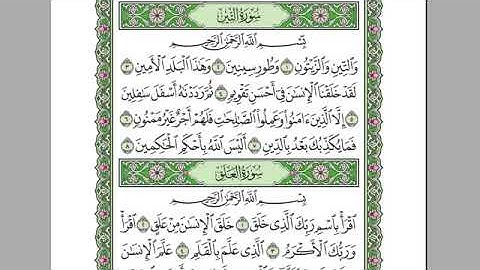 سُورَةُ التِّينِ
بِسْمِ اللَّهِ الرَّحْمَٰنِ الرَّحِيمِ
وَالتِّينِ وَالزَّيْتُونِ ١ وَطُورِ سِينِينَ ٢ وَهَٰذَا الْبَلَدِ الْأَمِينِ ٣
لَقَدْ خَلَقْنَا الْإِنسَانَ فِي أَحْسَنِ تَقْوِيمٍ ٤ ثُمَّ رَدَدْنَاهُ أَسْفَلَ سَافِلِينَ
٥ إِلَّا الَّذِينَ ءَامَنُوا وَعَمِلُوا الصَّالِحَاتِ فَلَهُمْ أَجْرٌ غَيْرُ مَمْنُونٍ ٦
فَمَا يُكَذِّبُكَ بَعْدُ بِالدِّينِ ٧ أَلَيْسَ اللَّهُ بِأَحْكَمِ الْحَاكِمِينَ ٨
سُورَةُ الْعَلَقِ
بِسْمِ اللَّهِ الرَّحْمَٰنِ الرَّحِيمِ
اقْرَأْ بِاسْمِ رَبِّكَ الَّذِي خَلَقَ ١ خَلَقَ الْإِنسَانَ مِنْ عَلَقٍ ٢ اقْرَأْ
وَرَبُّكَ الْأَكْرَمُ ٣ الَّذِي عَلَّمَ بِالْقَلَمِ ٤ عَلَّمَ الْإِنسَانَ